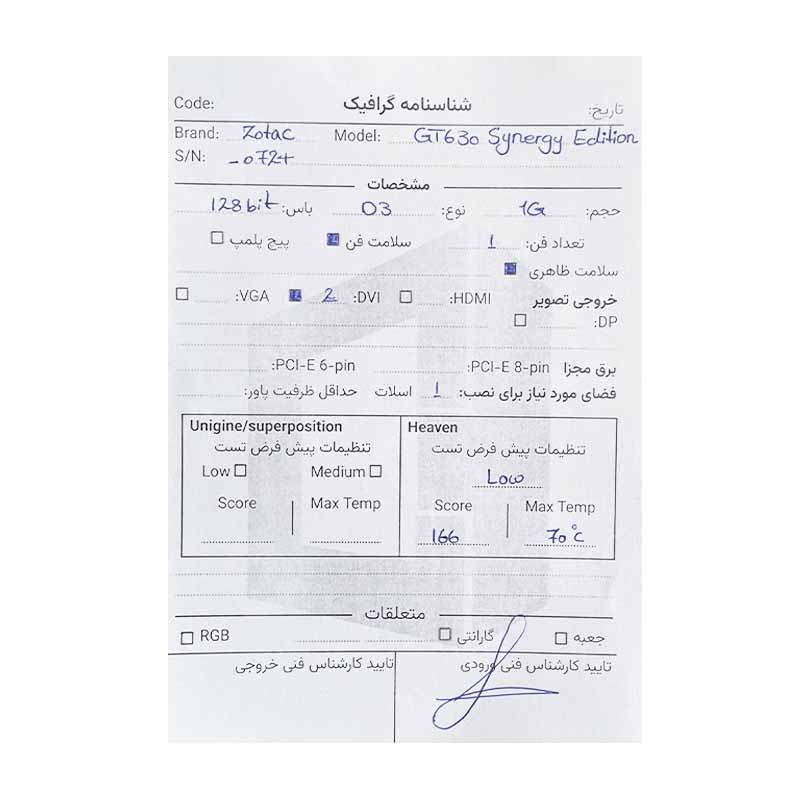 Code: شناسنامه گرافیک تاریخ:
Brand: Zotac Model: GT630 Synergy Edition
S/N: -0724
مشخصات
حجم: 1G نوع: D3 باس: 128bit
تعداد فن: 1 سلامت فن پیچ پلمپ
سلامت ظاهری
خروجی تصویر HDMI: DVI: 2 VGA:
DP:
برق مجزا PCI-E 8-pin: PCI-E 6-pin:
فضای مورد نیاز برای نصب: 1 اسلات حداقل ظرفیت پاور:
Unigine/superposition Heaven
تنظیمات پیش فرض تست تنظیمات پیش فرض تست
Low Medium Low
Score Max Temp Score Max Temp
166 70°C
متعلقات
جعبه گارانتی RGB
تایید کارشناس فنی ورودی تایید کارشناس فنی خروجی